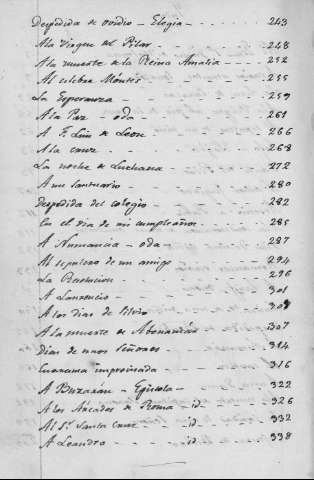 Despedida de ovidio - Elegia - 243
A la Virgen del Pilar - 248
A la muerte de la Reina Amalia - 252
Al celebre Montes - 255
La Esperanza - 259
A la Paz oda - 261
A F. Luis de Leon - 266
A la cruz - 268
La noche de Luchana - 272
A un santuario - 280
Despedida del colegio - 282
En el dia de mi cumpleaños - 285
A Numancia - oda - 287
Al sepulcro de un amigo - 294
La - 296
A Laurencio - 301
A los dias de Silvio
A la muerte de Abenamar - 307
Dias de unos Señores - 314
improvisada - 316
A - Epistola - 322
A los Arcades de Roma - id - 326
Al Sr. Santa Cruz - id - 332
A Leandro - id - 338